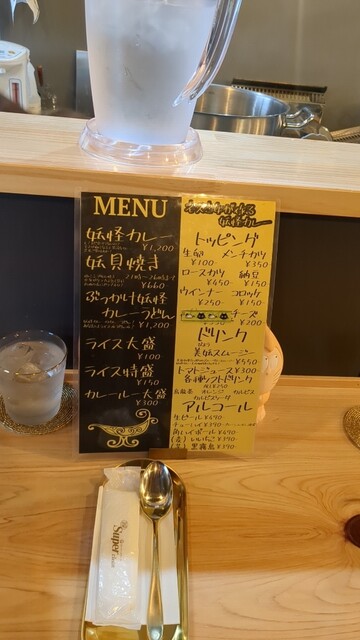 MENU
妖怪カレー
¥1,200
妖貝焼き
¥660
ぶっかけ妖怪
カレーうどん
¥1,200
ライス大盛
¥100
ライス特盛
¥150
カレールー大盛
¥300
妖怪カレー
トッピング
生卵 メンチカツ
¥100 ¥350
ロースカツ 納豆
¥450 ¥150
ウインナー コロッケ
¥250 ¥150
チーズ
¥200
ドリンク
美妖スムージー
¥550
トマトジュース ¥300
各種ソフトドリンク
各¥250
烏龍茶 オレンジ カルピス
カルピスソーダ
アルコール
生ビール ¥490
チューハイ ¥390
角ハイボール ¥490
(麦) いいちこ ¥390
黒霧島 ¥390
Super